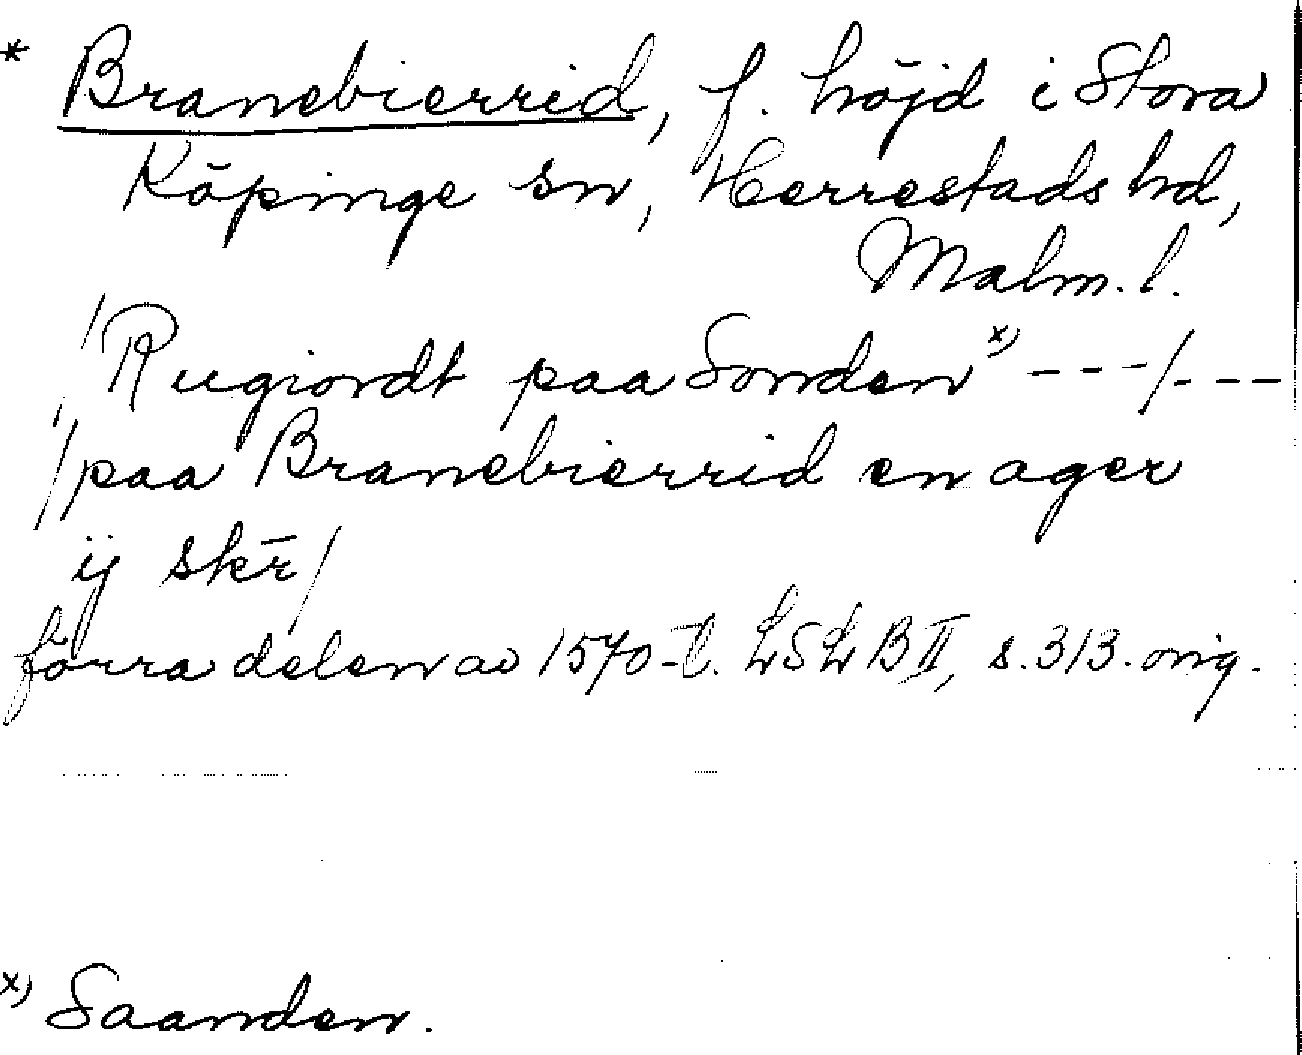 * Branebierrid, f. höjd i Stora
Köpinge sn, Herrestads hd,
Malm. l.
/Rugiordt paa Sonden x) - - - /. - - -
/paa Branebierrid en ager
ij skr̄/
förra delen av 1570-t. LSLB II, s. 313. orig.
x) Saanden.